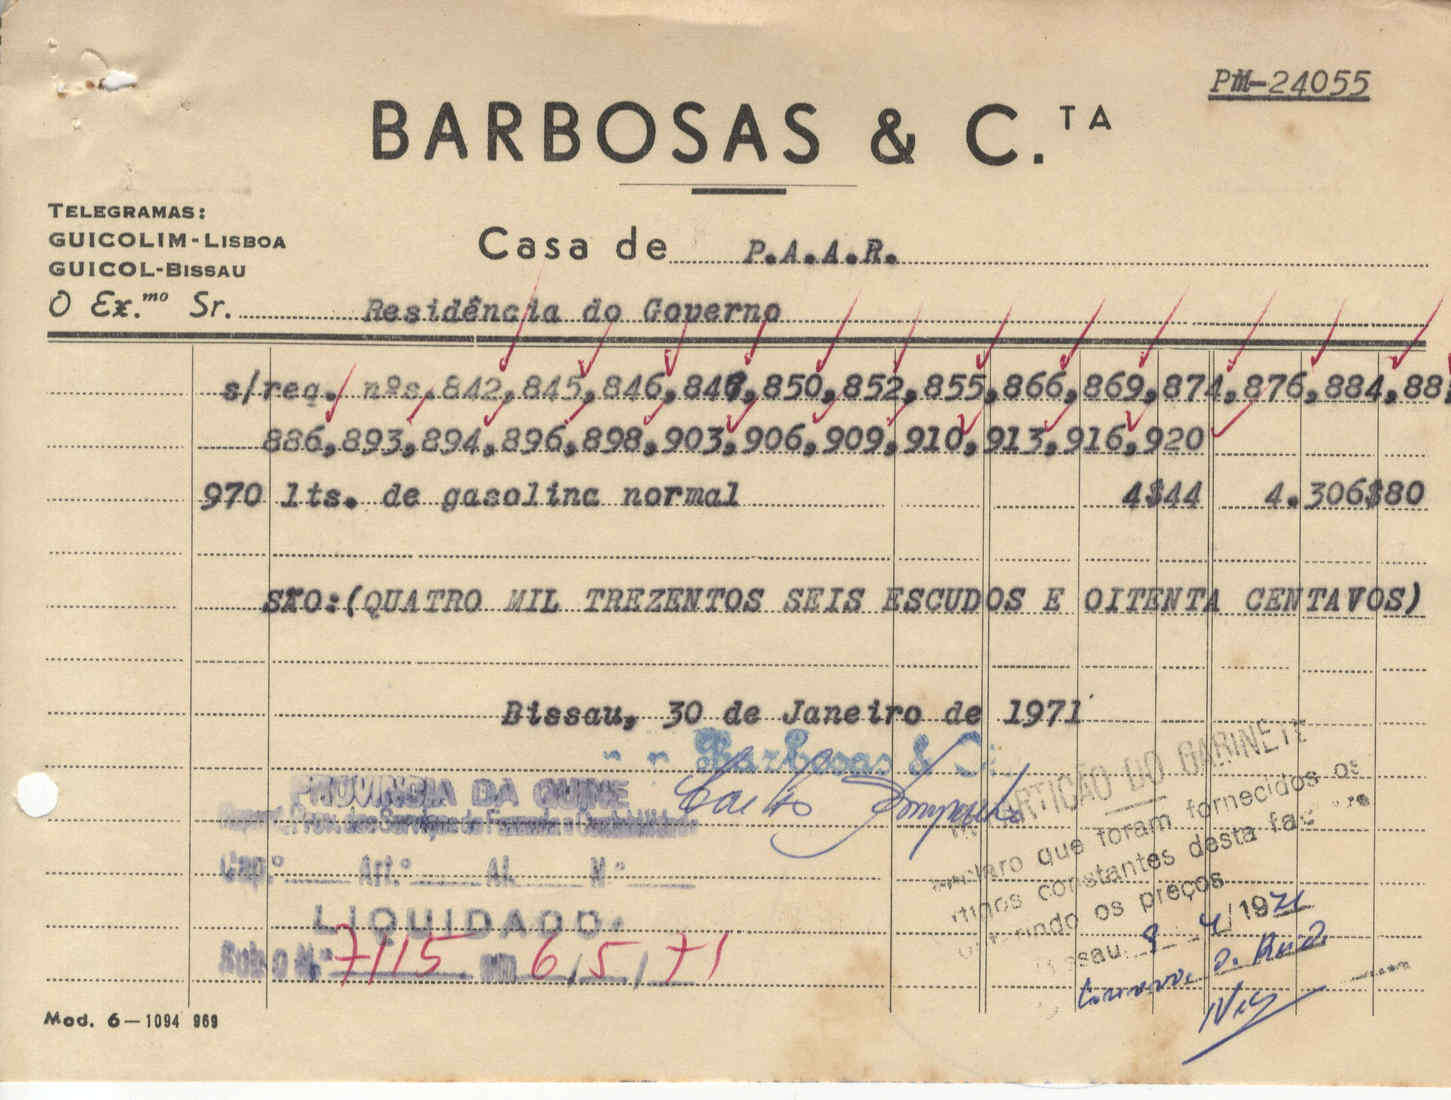 PM-24055
BARBOSAS & C.TA
TELEGRAMAS:
GUICOLIM-LISBOA
GUICOL-BISSAU
Casa de P.A.A.R.
O Ex.mo Sr. Residência do Governo
s/req. nºs.842,845,846,847,850,852,855,866,869,874,876,884,88
886,893,894,896,898,903,906,909,910,913,916,920
970 lts. de gasolina normal 4$44 4.306$80
SÃO:(QUATRO MIL TREZENTOS SEIS ESCUDOS E OITENTA CENTAVOS)
Bissau, 30 de Janeiro de 1971
Barbosas & C
PROVINCIA DA GUINE
Repart. Prov. dos Serviços de Fazenda e Contabilidade
Cap.º Art.º Al. N.º
LIQUIDADO
Sob o N.º 7115 em 6/5/71
RTIÇÃO DO GABINETE
claro que foram fornecidos os
constantes desta fac
os preços
ssau 8 4/1971
Mod. 6-1094 969